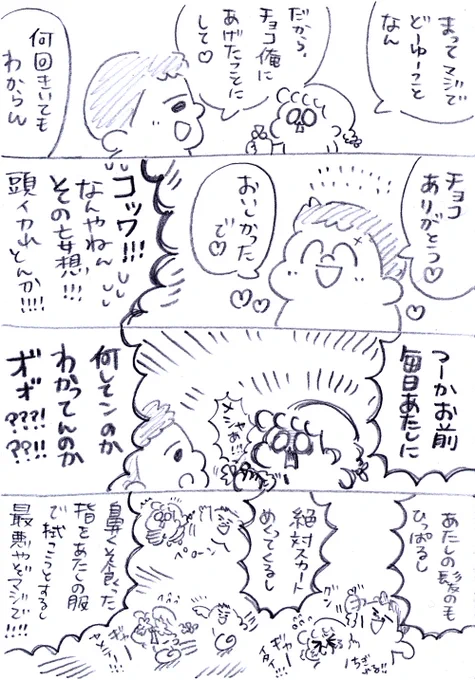 まって マジで
どーゆーこと
なん
だから、
チョコ俺に
あげたことに
して♡
何回きいても
わからん
チョコ
ありがとう♡
おいしかった
で♡
コッワ!!!
なんやねん
その妄想!!!
頭イカれ
とんか!!!!
つーかお前
毎日あたしに
メシャあ!!!
何してンのか
わかってんのか
オォ
???!
??!!
あたしの髪のも
ひっぱるし
グン
絶対スカート
めくってくるし
ペローン
鼻くそ食った
指をあたしの服
で拭こうとするし
最悪やぞマジで!!!!